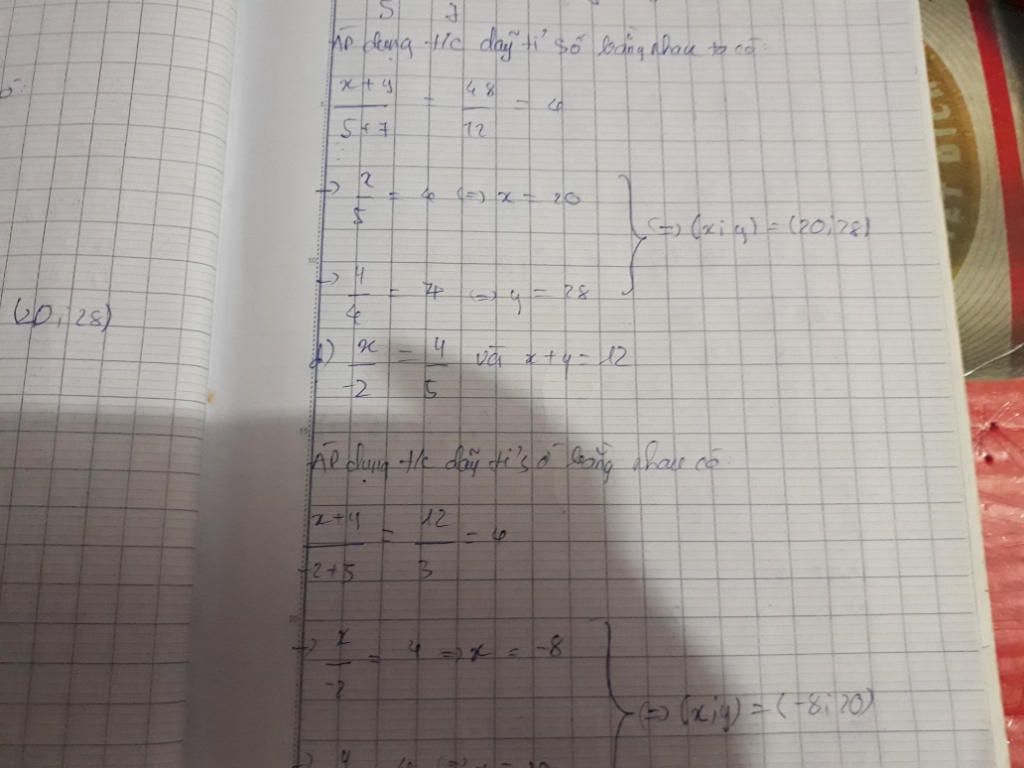 5 7
ÁP dụng t/c dãy tỉ số bằng nhau ta có:
x+y / 5+7 = 48 / 12 = 4
→ x / 5 = 4 (=) x = 20
→ y / 4 = 4 (=) y = 28
(=) (x; y) = (20; 28)
(20; 28)
d) x / -2 = y / 5 và x + y = 12
ÁP dụng t/c dãy tỉ số bằng nhau có
x+y / -2+5 = 12 / 3 = 4
→ x / -2 = 4 => x = -8
(=) (x; y) = (-8; 20)